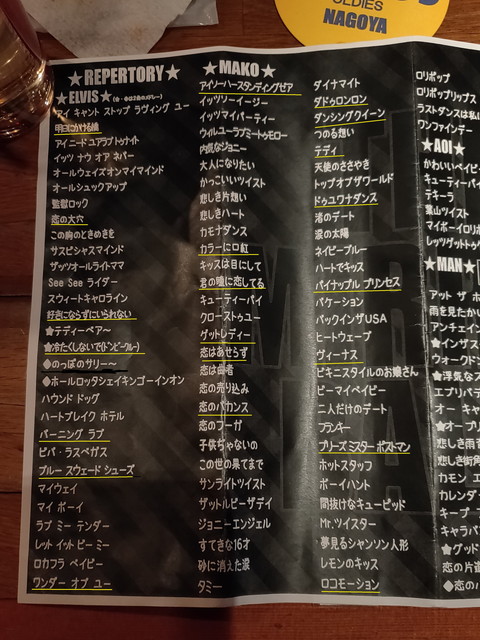 OLDIES
NAGOYA
★REPERTORY★
★ELVIS★
アイ キャント ストップ ラヴィング ユー
明日にかける橋
アイ ニード ユアラブトゥナイト
イッツ ナウ オア ネバー
オールウェイズオンマイマインド
オールシュックアップ
監獄ロック
恋の大穴
この胸のときめきを
サスピシャスマインド
ザッツオールライトママ
See See ライダー
スウィートキャロライン
好きにならずにいられない
★テディーベア〜
★冷たくしないで(ドンビークルー)
◆のっぽのサリー〜
◆ホールロッタシェイキンゴーインオン
ハウンド ドッグ
ハートブレイク ホテル
バーニング ラブ
ビバ・ラスベガス
ブルー スウェード シューズ
マイウェイ
マイ ボーイ
ラブ ミー テンダー
レット イット ビー ミー
ロカフラ ベイビー
ワンダー オブ ユー
★MAKO★
アイソーハースタンディングゼア
イッツソーイージー
イッツマイパーティー
ウィルユーラブミートゥモロー
内気なジョニー
大人になりたい
かっこいいツイスト
悲しき片想い
悲しきハート
カモナダンス
カラーに口紅
キッスは目にして
君の瞳に恋してる
キューティーパイ
クローストゥユー
ゲットレディー
恋はあせらず
恋は曲者
恋の売り込み
恋のバカンス
恋のフーガ
子供ぢゃないの
この世の果てまで
サンライトツイスト
ザットルビーザデイ
ジョニーエンジェル
すてきな16才
砂に消えた涙
タミー
ダイナマイト
ダドゥロンロン
ダンシングクイーン
つのる想い
テディ
天使のささやき
トップオブザワールド
ドゥユワナダンス
渚のデート
涙の太陽
ネイビーブルー
ハートでキッス
パイナップル プリンセス
バケーション
バックインザUSA
ヒートウェーブ
ヴィーナス
ビキニスタイルのお嬢さん
ビーマイベイビー
二人だけのデート
フランキー
プリーズ ミスター ポストマン
ホットスタッフ
ボーイハント
間抜けなキューピッド
Mr.ツイスター
夢見るシャンソン人形
レモンのキッス
ロコモーション
ロリポップ
ロリポップリップス
ラストダンスは私
ワンファインデー
★AOI★
かわいいベイビー
キューティーパイ
テキーラ
葉山ツイスト
マイボーイロリポ
レッツゲットトゥゲ
★MAN★
アット ザ ホ
雨を見たかい
アンチェイン
★インザス
ウォークド
★浮気なス
エブリバデ
オー キャ
★オープリ
悲しき雨音
悲しき街角
カモン エ
カレンダー
キープ
キャラバ
★グッド
恋の片道
◆恋の